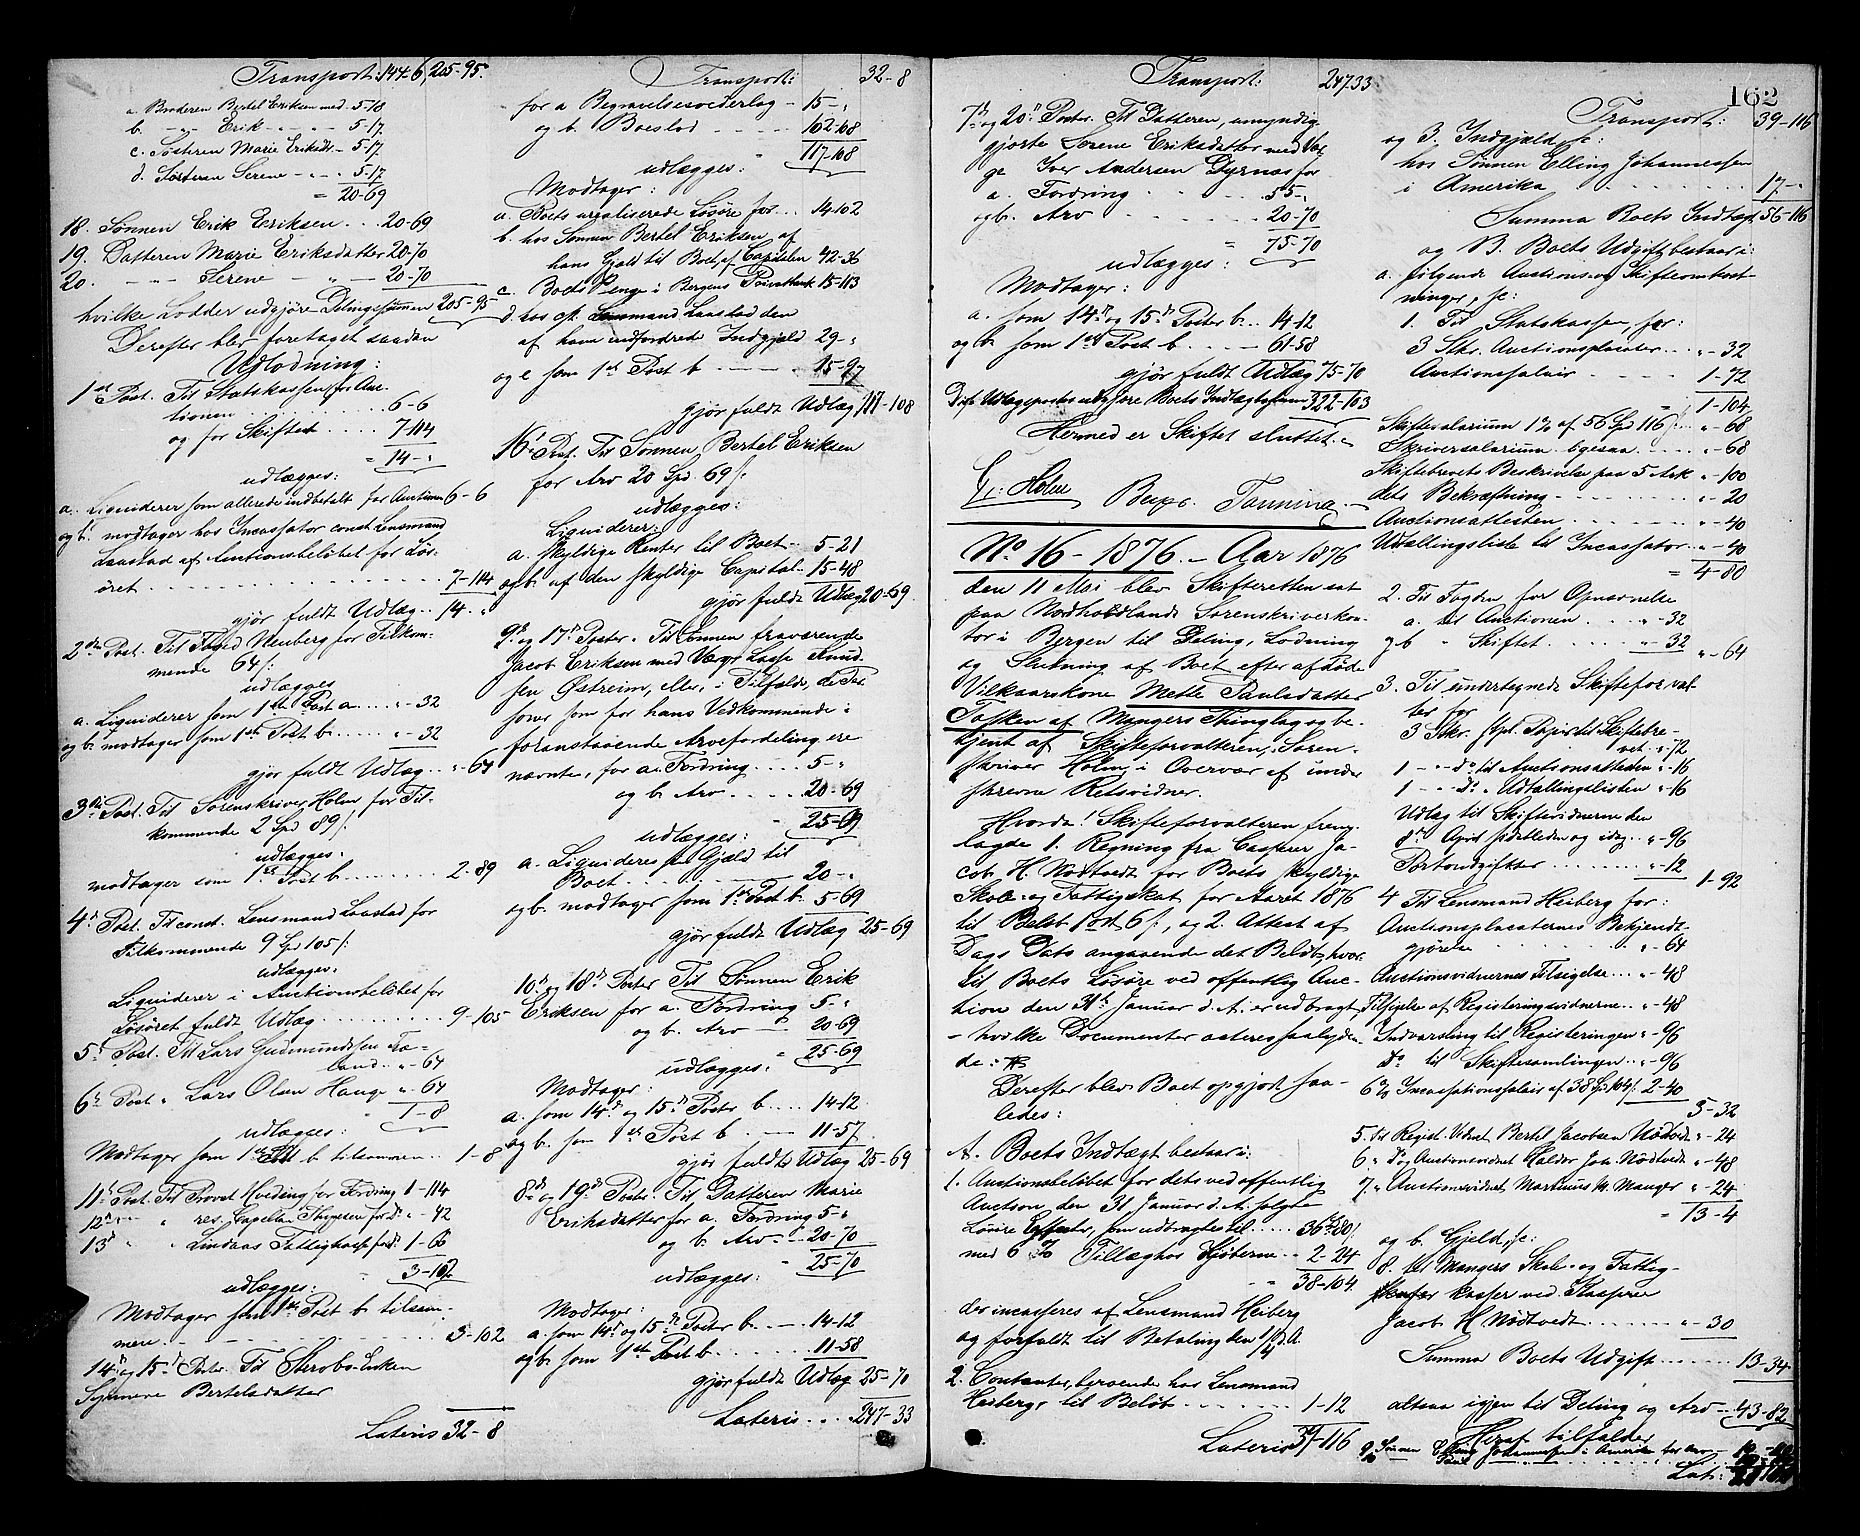 Transport: 144-6, 205-95.
a. Broderen Bertel Eriksen med 5-18
b. -"- Erik - " - 5-17
c. Søsteren Marie Eriksdr. - 5-17
d. Søsteren Serene - " - 5-17
= 20-69
18. Sønnen Erik Eriksen ... 20-69
19. Datteren Marie Eriksdatter 20-70
20. -"- Serene " - 20-70
hvilke Lodder udgjøre Delingssummen 205-95
Derefter blev foretaget saadan
Udlodning:
1ste Post. Til Statskassen for Auc-
tionen ......... 6-6
og for Skiftet .... 7-114
= 14-"
udlægges:
a. Liquiderer som allerede indbetalt for Auctionen 6-6
og b. modtager hos Incassator const. Lensmand
Laastad af Auctionsbeløbet for Løs-
øret ......... 7-114
gjør fuldt Udlæg .. 14-"
2den Post. Til Foged Neuberg for Tilkom-
mende 64 /:
udlægges
a. Liquiderer som 1ste Post a .... "-32
og b. modtager som 1ste Post b. .... "-32
gjør fuldt Udlæg .. "-64
3die Post. Til Sørenskriver Holm for Til-
kommende 2 Spd 89 /:
udlægges:
modtager som 1ste Post b ......... 2-89
4de Post. Til const. Lensmand Laastad for
Tilkommende 9 Spd 105 /:
udlægges:
Liquiderer i Auctionsbeløbet for
Løsøret fuldt Udlæg ......... 9-105
5te Post. Til Lars Gudmundsen
land .. "-64
6te Post " Lars Olsen Hauge " "-64
1-8
udlægges:
Modtager som 1ste Post b tilsammen .. 1-8
11te Post. Til Provst Hvoding for Fordring 1-114
12te " " res. Capellan Thomesen for Do "-42
13de " " Lindaas Fattigkasse ford: 1-66
3-102
udlægges:
Modtager som 1ste Post b. tilsam-
mens ......... 3-102
14de og 15de Poster. Til Stervbo-Enken
Bertelsdatter
Lateris 32-8
Transport: 32-8
for a Begravelsesvederlag - 15-"
og b. Boeslod - - - - 102-108
117-108
udlægges:
Modtager:
a. Boets urealiserede Løsøre for ... 14-102
b. hos Sønnen Bertel Eriksen af
hans Gjæld til Boet, af Capitalen 42-36
c. Boets Penge i Bergens Privatbank 15-113
d. hos cst. Lensmand Laastad den
af ham indfordrede Indgjæld 29-"
og e som 1ste Post b - - - - 15-97
gjør fuldt Udlæg 117-108
16de Post. Til Sønnen Bertel Eriksen
for Arv 20 Spd 69 /:
udlægges:
Liquiderer:
a. skyldige Renter til Boet - 5-21
og b. af den skyldige Capital .. 15-48
gjør fuldt Udlæg 20-69.
9de og 17de Poster. Til Sønnen fraværende
Jacob Eriksen med Værge Lasse Knud-
sen Østreim, Mer, i Tilfælde, de Per-
soner som for hans Vedkommende i
foranstaaende Arvefordeling ere
nævnte, for a. Fordring .... 5-"
og b. Arv ..... 20-69
25-69
udlægges:
a. Liquideres for Gjæld til
Boet ......... 20-"
og b. modtager som 1ste Post b. 5-69
gjør fuldt Udlæg 25-69
10de og 18de Poster Til Sønnen Erik
Eriksen for a. Fordring 5-"
og b. Arv - 20-69
25-69
udlægges:
Modtager:
a. som 14de og 15de Poster b. .... 14-12
og b. som 1ste Post b. .... 11-57
gjør fuldt Udlæg 25-69
8de og 19de Poster. Til Datteren Marie
Eriksdatter for a. Fordring 5-"
og b. Arv .. 20-70
25-70
udlægges:
Modtager:
a. som 14de og 15de Poster b. - - 14-12
og b. som 1ste Post b. ...... 11-58
gjør fuldt Udlæg 25-70
Lateris ... 247-33
Transport: 247-33
7de og 20de Poster. Til Datteren, umyndig
gjorte Serene Eriksdatter med Vær-
ge Iver Andersen Dyrnæs for
a. Fordring - - - 55-
og b. Arv - - - 20-70
75-70
udlægges:
Modtager:
a. som 14de og 15de Poster b. - 14-12
og b. som 1ste Post b. .... 61-58
gjør fuldt Udlæg 75-70
Disse Udlægsposter udgjøre Boets Indtægtssum 322-103
Hermed er Skiftet sluttet.-
Holm
No 16 - 1876. - Aar 1876
den 11 Mai blev Skifteretten sat
paa Nordhordlands Sørenskriverkon-
tor i Bergen til Deling, Lodning
og Slutning af Boet efter afdøde
Vilkaarskone Mette Paulsdatter
Tossken af Mangers Thinglag og be-
tjent af Skifteforvalteren, Søren-
skriver Holm, i Overvær af under
skrevne Retsvidner.
Hvorda! Skifteforvalteren frem-
lagde 1. Regning fra Casperer Ja-
cob H. Nødtvedt for Boets skyldige
Skole- og Fattigskat for Aaret 1876
til Beløb 1 ort 6 /:, og 2. Attest af
Dags Dato angaaende det Beløb, hvor-
til Boets Løsøre ved offentlig Auc-
tion den 31te Januar d. A. er udbragt,
- hvilke Documenter acteres saalyden-
de:
Derefter blev Boet opgjort saa-
ledes:
A. Boets Indtægt bestaar i:
1. Auctionsbeløbet for dets ved offentlig
Auction den 31 Januar d. A. solgte
Løsøre Effecter, som udbragtes til .... 36 Spd 80 /:
med 6 % Tillæg hos Kjøberne .. 2-24
38-104
der incasseres af Lensmand Heiberg
og forfaldt til Betaling den 1/4 d. A.
2. Contanter, beroende hos Lensmand
Heiberg, til Beløb - - - - 1-12
Lateris 39-116
162
Transport: 39-116
og 3. Indgjæld, sc:
hos Sønnen Elling Johannessen
i Amerika ......... 17-"
Summa Boets Indtægt 56-116
og B. Boets Udgift bestaar i:
a. følgende Auctions- og Skifteomkost-
ninger, sc:
1. Til Statskassen, for:
3 Stkr. Auctionsplacater .... "-32
Auctionssalair - - - - 1-72
1-104
Skiftesalarium 1 % af 56 Spd 116 /: "-68
Skriversalarium ligesaa .... "-68
Skiftebrevets Beskrivelse paa 5 Ark "-100
dets Bekræftning - - - - "-20
Auctionsattesten ......... "-40
Udtællingsliste til Incassator .. "-40
= 4-80
2. Til Fogden for Opnævnelse
a. til Auctionen .... "-32
og b " Skiftet ...... "-32
"-64
3. Til undertegnede Skifteforval-
ter for
3 Stkr. stpl. Papir til Skiftebre-
vet. "-72
1 - " do til Auctionsattesten "-16
1 - " Do " Udtællingslisten "-16
Udlæg til Skiftevidnerne den
8de April sidstleden og idag .. "-96
Portoudgifter ......... "-12
1-92
4 Til Lensmand Heiberg for:
Auctionsplacaternes Bekjendt-
gjørelse ......... "-64
Auctionsvidnernes Tilsigelse ... "-48
Tilsigelse af Registeringsvidnerne .. "-48
Indvarsling til Registeringen "-96
Do til Skiftesamlingen .. "-96
6 % Incassationssalair af 38 Spd 104 /: 2-40
5-32
5. Til Regist. Vidnet Bertel Jacobsen Nødtvedt "-24
6. " Do og Auctionsvidnet Haldor Joh. Nødtvedt "-48
7. " Auctionsvidnet, Martinus M. Manger "-24
= 13-4
og b. Gjeld, sc:
8. til Mangers Skole- og Fattig-
kasser ved Kasserer
Jacob H. Nødtvedt ...... "-30
Summa Boets Udgift ...... 13-34
altsaa igjen til Deling og Arv .. 43-82
Heraf tilfalder
9. Sønnen Elling Johannessen i Amerika for Arv
Lat: